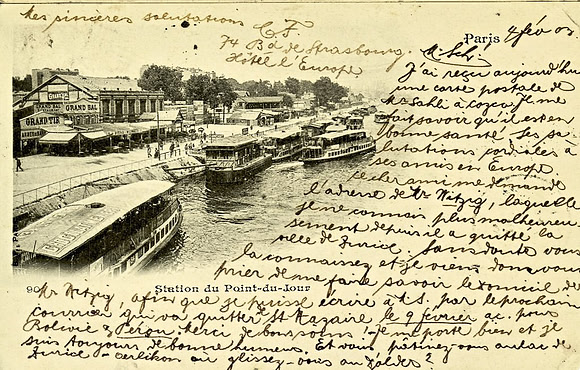 Mes sincères salutations
C F
74 Bd de Strasbourg.
Hôtel l'Europe
Paris 4 fév 03
M. Schi
J'ai reçu aujourd'hui
une carte postale de
Mr Sahli à Il me
fait savoir qu'il est en
bonne santé. Ses sa-
lutations cordiales à
ses amis en Europe
Ce cher ami me demande
l'adresse de Mr Netzig, laquelle
je ne connais plus malheureu-
sement depuis il a quitté la
ville de Zurich. Sans doute vous
la connaissez et je viens donc vous
prier de me faire savoir le domicile de
Mr Netzig, afin que je puisse écrire à A.S. par le prochain
courrier qui va quitter St Nazaire le 9 février a.c. pour
Bolivie & Pérou. Merci de bons soins! - Je me porte bien et je
suis toujours de bonne humeur. Et vous, patinez-vous au lac de
Zurich - Oerlikon où glissez-vous au Dolder?
GRAND BAL
GRAND BAL
GRAND TIR
90
Station du Point-du-Jour